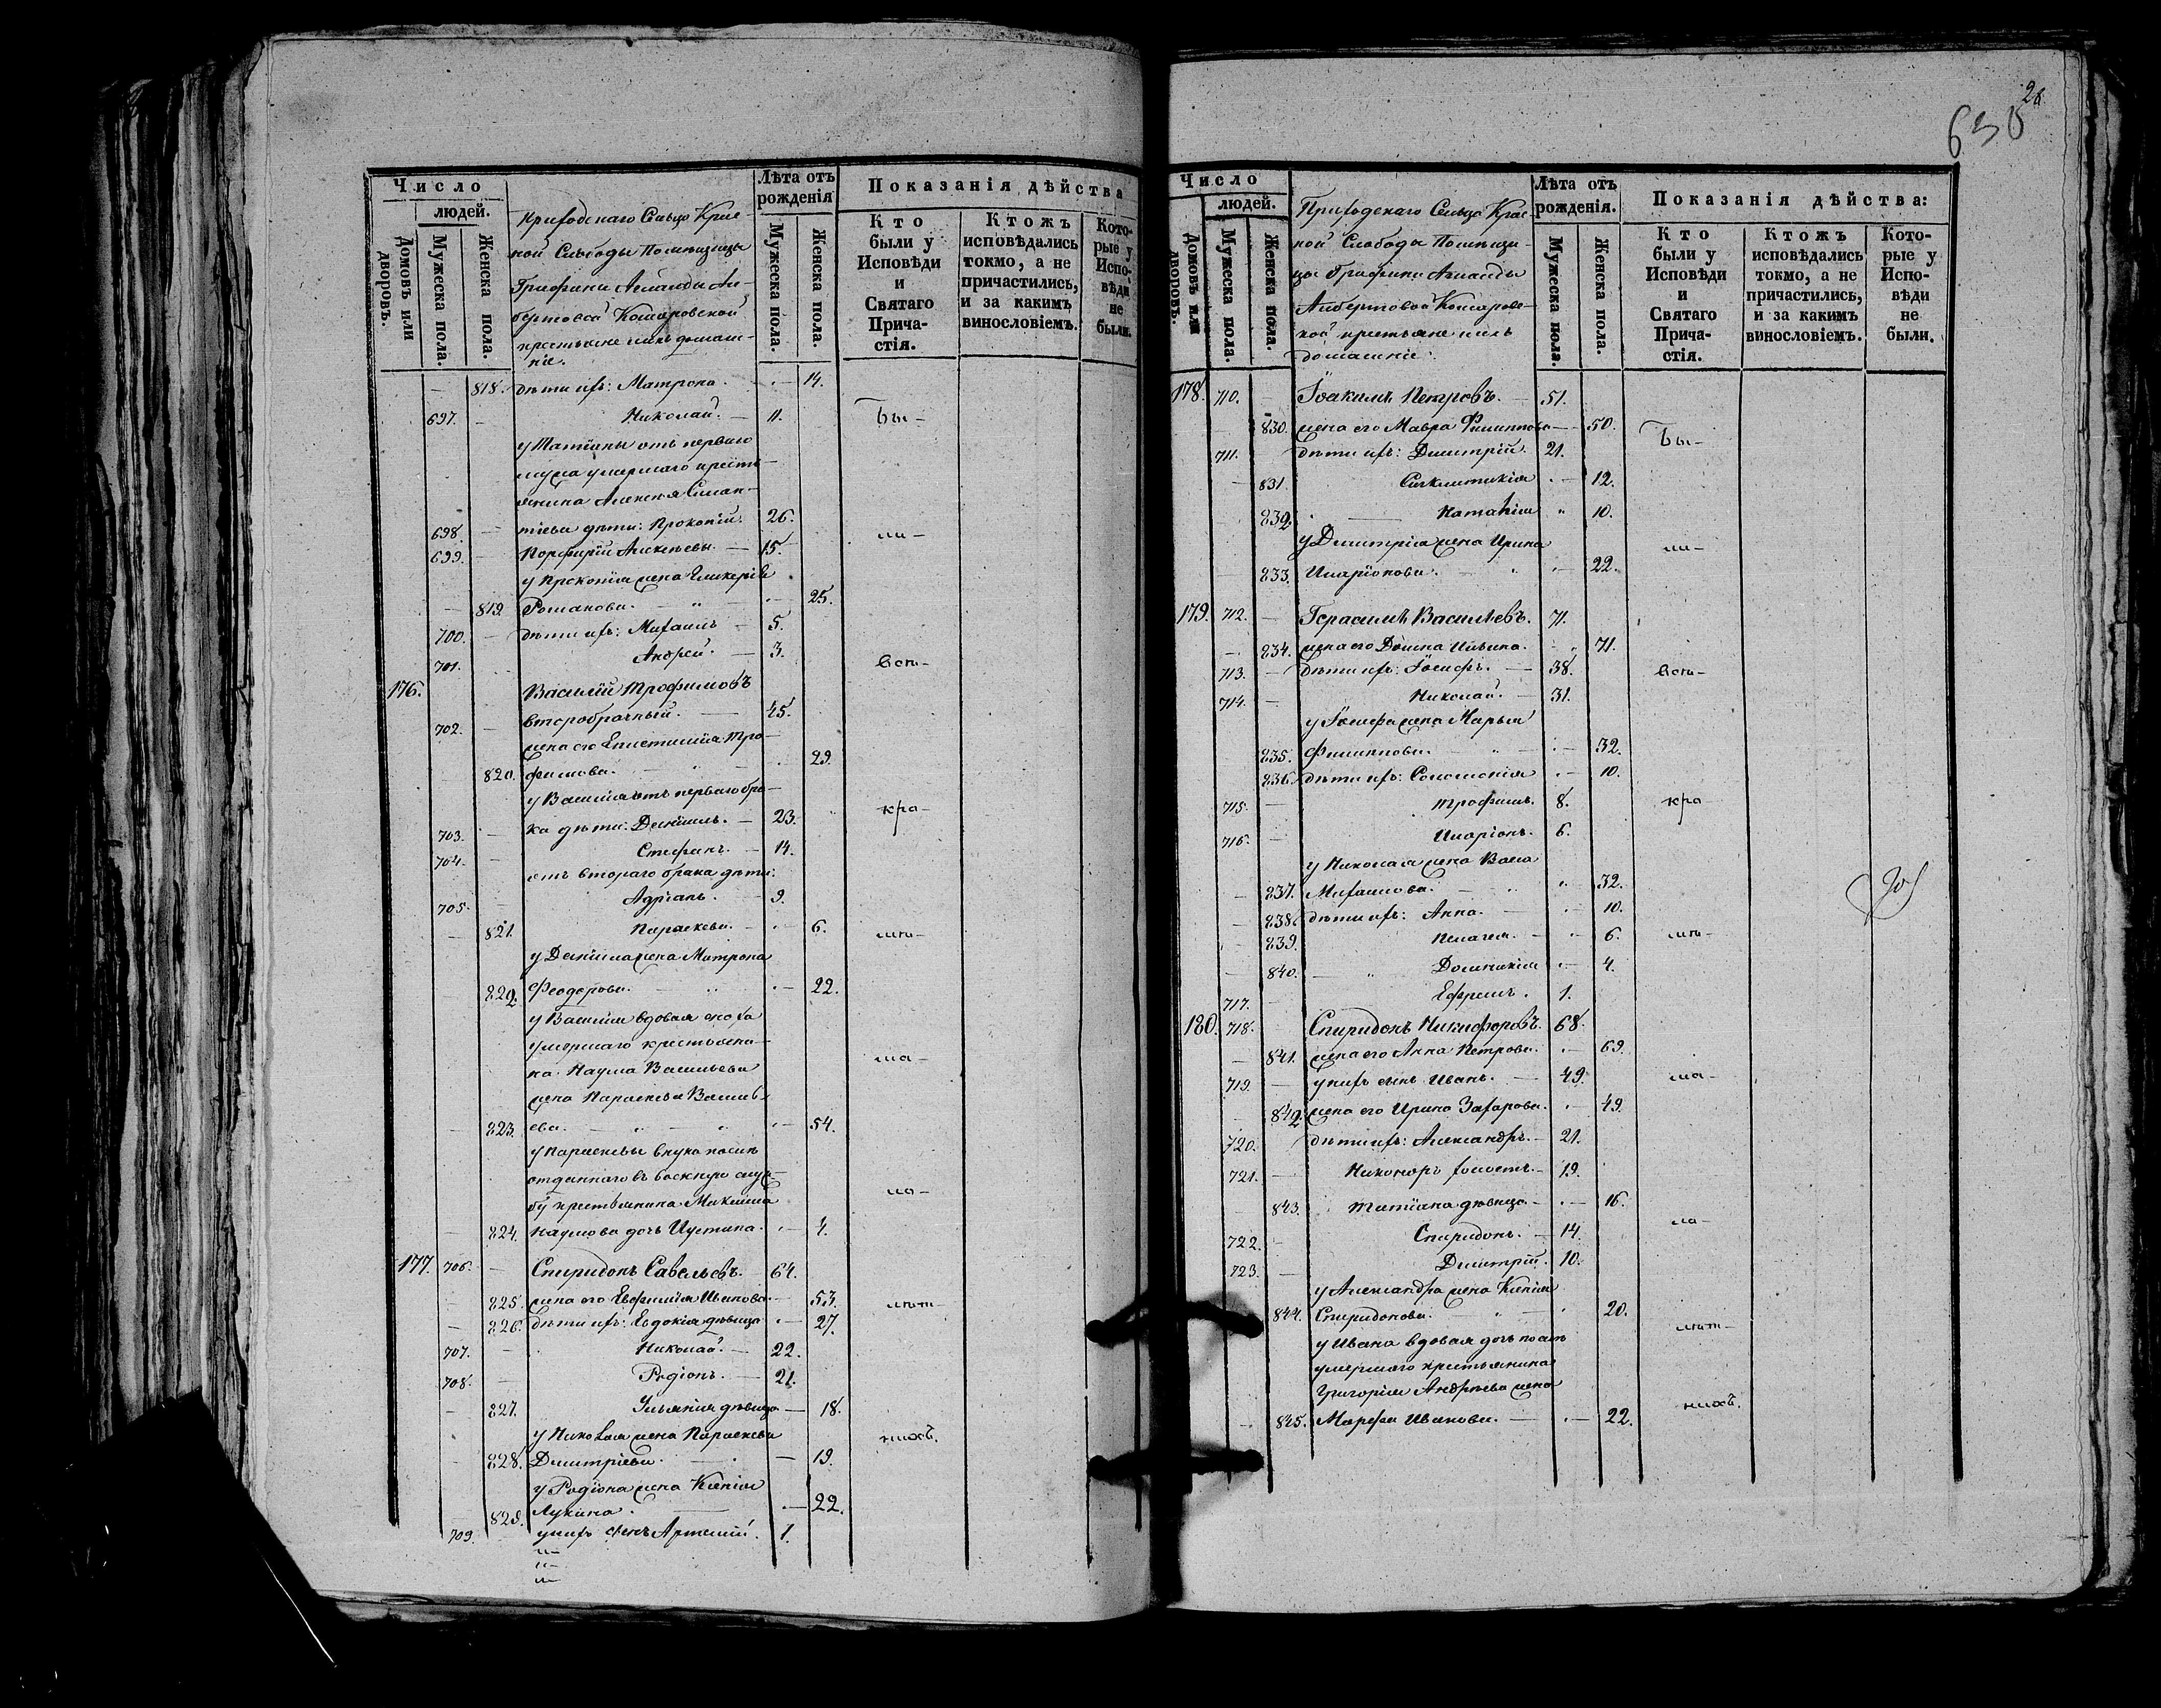 Число
людей.
Домовъ или дворовъ.
Мужеска пола.
Женска пола.
Приходскаго Сельца Крас-
ной Слободы Помѣщицы
Графини
Комаровской
крестьяне ихъ домаш-
ніе.
Лѣта отъ рожденія
Мужеска пола.
Женска пола.
Показанія дѣйства
Кто были у Исповѣди и Святаго Прича-стія.
Ктожъ исповѣдались токмо, а не причастились, и за какимъ винословіемъ.
Кото-рые у Испо-вѣди не были.
818. дѣти ихъ: Матрона. 14.
697. Николай. 11. Бы-
у Татіаны отъ перваго
мужа умершаго кресть-
янина Алексѣя
698. дѣти: Прокопій. 26. ли-
699. Порфирій Алексѣевы. 15.
у Прокопія жена Гликерія
819. Романова. 25.
700. дѣти ихъ: Михаилъ 5.
701. Андрей. 3. вси-
176. Василій Трофимовъ
702. второбрачный. 45.
жена его Епистимія Тро-
820. фимова. 29.
у Василія отъ перваго бра-
703. ка дѣти: Даніилъ. 23. кра-
704. Стефанъ. 14.
отъ втораго брака дѣти:
705. Адріанъ. 9.
821. Параскева. 6. сно-
у Даніила жена Матрона
822. Феодорова. 22.
у Василія вдовая сноха
умершаго крестьяни-
на Наума Васильева ма-
жена Параскева Василь-
823. ева. 54.
у Параскевы внука
отданнаго въ воскную служ-
бу крестьянина
824. Наумова дочь Иустина. 4.
177. 706. Спиридонъ Савельевъ. 64.
825. жена его Евфимія Иванова. 53.
826. дѣти ихъ: Евдокія дѣвица 27.
707. Николай. 22.
708. Родіонъ. 21.
827. Ульянія дѣвица 18.
у Николая жена Параскева никъ.
828. Димитріева. 19.
у Родіона жена Ксенія
829. Лукина. 22.
709. у нихъ сынъ Артемій. 1.
26
630
Число
людей.
Домовъ или дворовъ.
Мужеска пола.
Женска пола.
Приходскаго Сельца Крас-
ной Слободы Помѣщи-
цы Графини
Албертовой Комаров-
ской крестьяне ихъ
домашніе.
Лѣта отъ рожденія.
Мужеска пола.
Женска пола.
Показанія дѣйства:
Кто были у Исповѣди и Святаго Прича-стія.
Ктожъ исповѣдались токмо, а не причастились, и за какимъ винословіемъ.
Кото-рые у Испо-вѣди не были.
178. 710. Іоакимъ Петровъ. 51.
830. жена его Мавра Филиппова 50. Бы-
711. дѣти ихъ: Димитрій. 21.
831. Сигклитикія 12.
832. Наталія 10.
у Димитрія жена Ирина ли-
833. Иларіонова. 22.
179. 712. Герасимъ Васильевъ. 71.
834. жена его Домна Ильина. 71.
713. дѣти ихъ: Іосифъ. 38. вси-
714. Николай. 31.
у Іосифа жена Марья
835. Филиппова. 32.
836. дѣти ихъ: Соломонія 10.
715. Трофимъ. 8. кра
716. Иларіонъ. 6.
у Николая жена Васса
837. Михаилова. 32.
838. дѣти ихъ: Анна. 10.
839. Пелагея. 6. сно-
840. Домникія 4.
717. Ефремъ. 1.
180. 718. Спиридонъ Никифоровъ. 68.
841. жена его Анна Петрова. 69.
719. у нихъ сынъ Иванъ. 49. ма-
842. жена его Ирина Захарова. 49.
720. дѣти ихъ: Александръ. 21.
721. Никоноръ холостъ. 19.
843. Татіана дѣвица. 16.
722. Спиридонъ. 14.
723. Димитрій. 10.
у Александра жена Ксенія
844. Спиридонова. 20.
у Ивана вдовая дочь
умершаго крестьянина
Григорія Андреева жена
845. Марфа Иванова. 22. никъ.